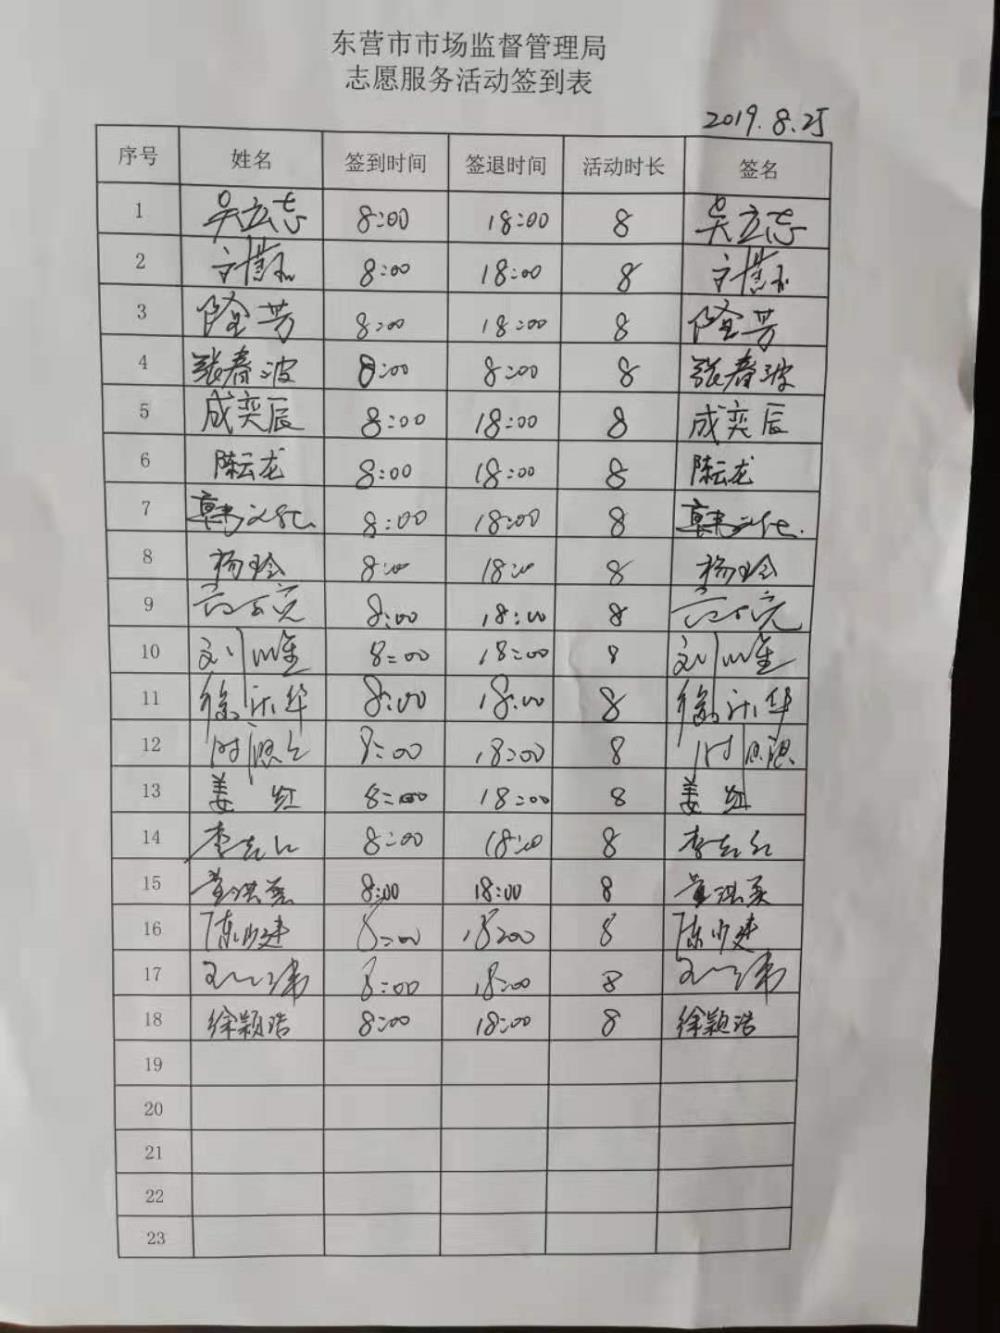 东营市市场监督管理局
志愿服务活动签到表
2019.8.25
序号 姓名 签到时间 签退时间 活动时长 签名
1 吴立志 8:00 18:00 8 吴立志
2 8:00 18:00 8
3 隆芳 8:00 18:00 8 隆芳
4 张春波 8:00 8:00 8 张春波
5 成奕辰 8:00 18:00 8 成奕辰
6 陈云龙 8:00 18:00 8 陈云龙
7 韩 8:00 18:00 8 韩
8 杨玲 8:00 18:00 8 杨玲
9 8:00 18:00 8
10 刘 8:00 18:00 8 刘
11 徐 华 8:00 18:00 8 徐 华
12 时 8:00 18:00 8 时
13 姜红 8:00 18:00 8 姜红
14 李 红 8:00 18:00 8 李 红
15 黄洪 8:00 18:00 8 黄洪
16 陈少建 8:00 18:00 8 陈少建
17 8:00 18:00 8
18 徐颖浩 8:00 18:00 8 徐颖浩
19
20
21
22
23